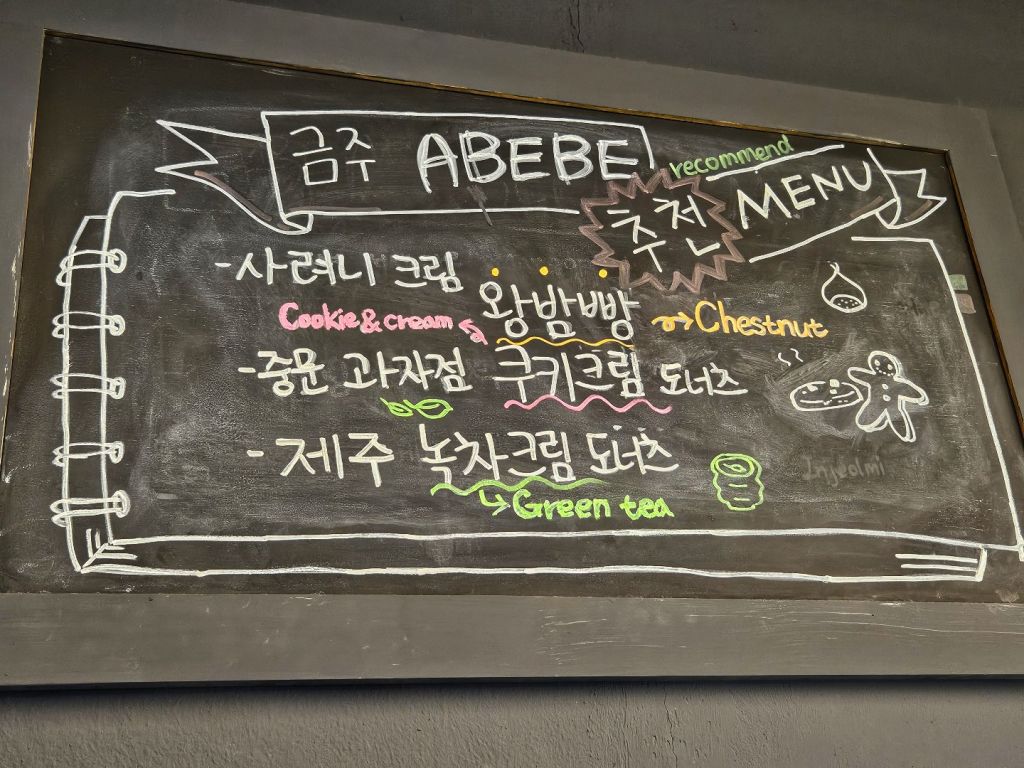 금주 ABEBE 추천 MENU
recommend
-사려니 크림 왕밤빵
Cookie & cream
Chestnut
-중문 과자점 쿠키크림 도너츠
-제주 녹차크림 도너츠
Green tea
Injeolmi